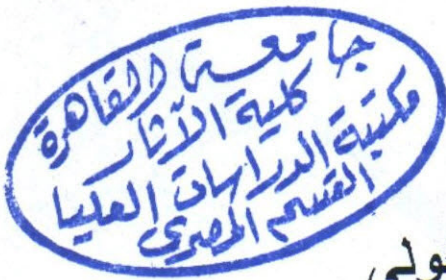 جامعة القاهرة
كلية الآثار
مكتبة الدراسات العليا
القسم المصرى
ولى